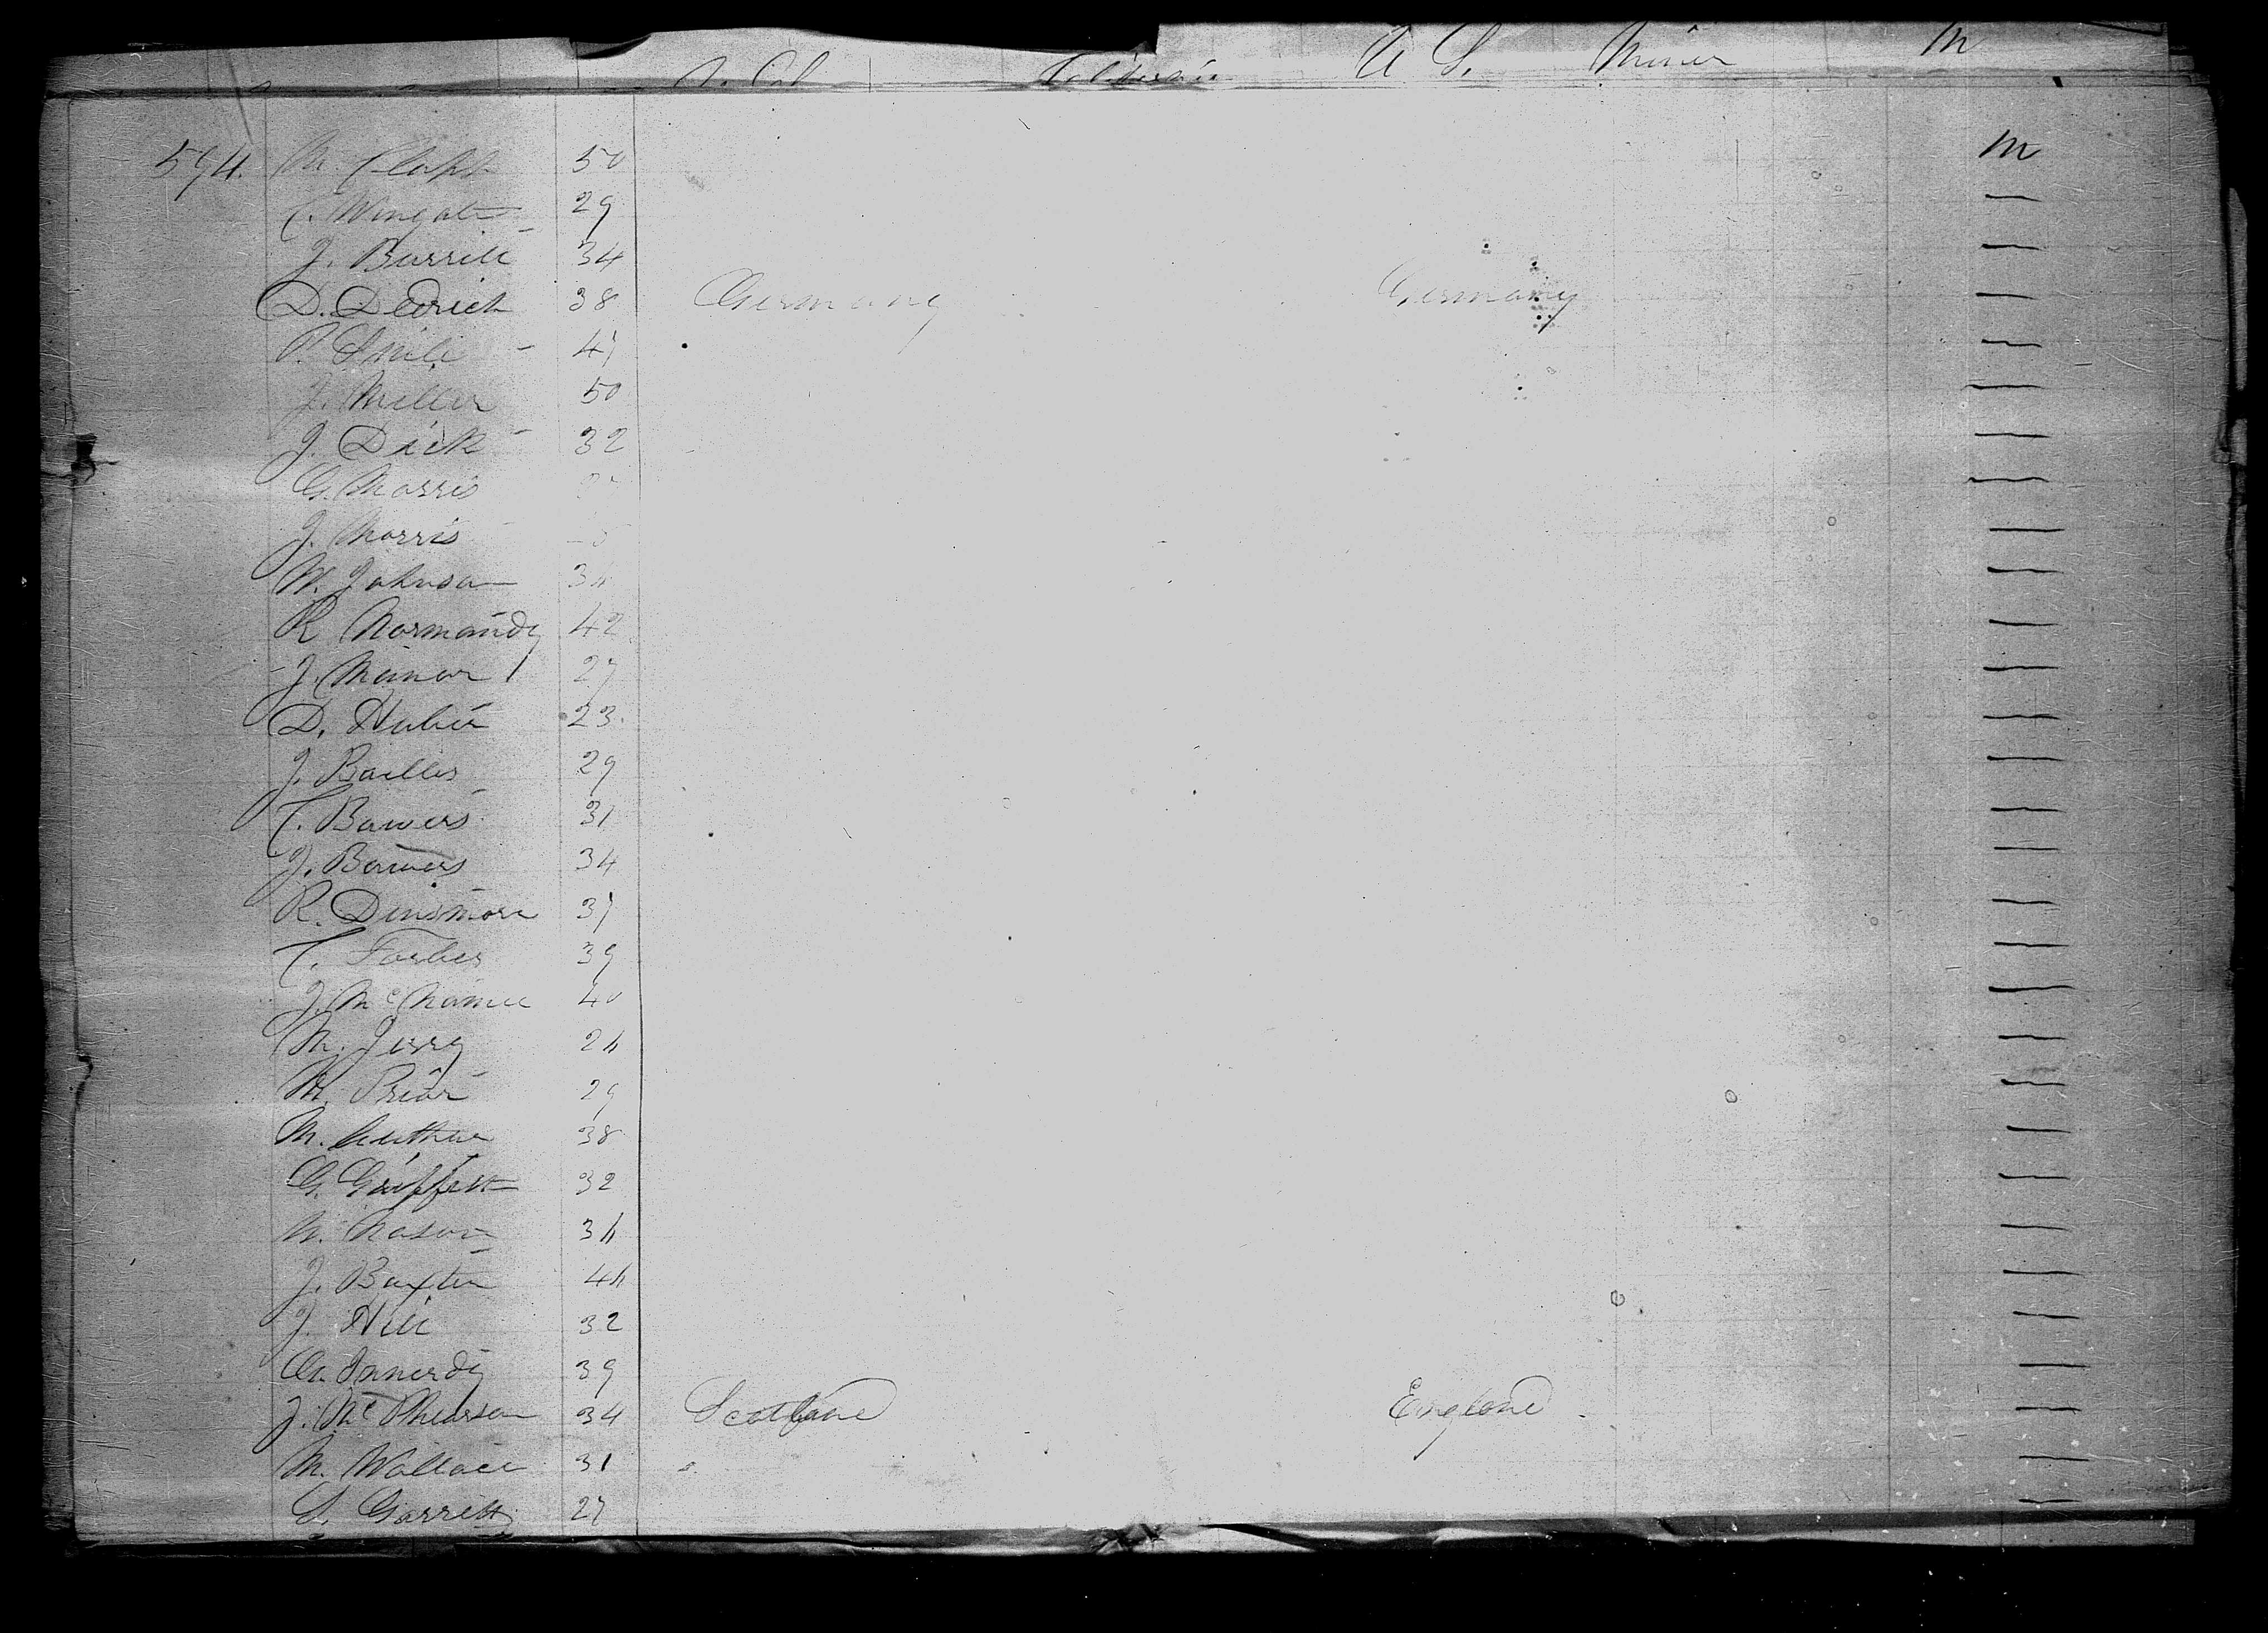 U S. Miner M
594. M. Clapp 50 M
C. Wingate 29 —
J. Burrill 34 —
D. Dedrich 38 Germany Germany —
P. 47 —
J. Miller 50 —
J. Dick 32 —
G. Morris —
J. Morris —
W. Johnson 34 —
R Normandy 42 —
J. Manor 27 —
D. Huber 23 —
J. Bailles 29 —
C. Bowers 31 —
J. Bowers 34 —
R. Dinsmore 37 —
C. Forbes 39 —
J. McNamee 40 —
M. Jerry 24 —
M. Prior 29 —
M. 38 —
G. Griffith 32 —
N. Nason 34 —
J. Baxter 44 —
J. Hill 32 —
39 —
J. McPhearson 34 Scotland England —
M. Wallace 31 —
S. Garrett 27 —